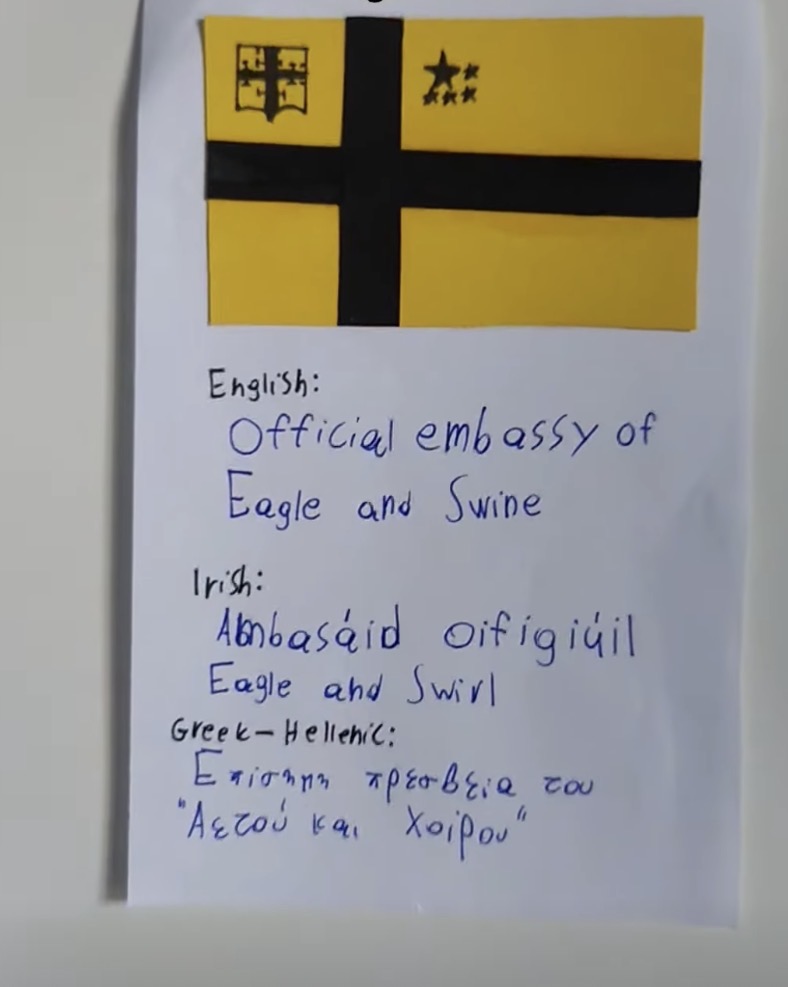 English:
Official embassy of
Eagle and Swine
Irish:
Ambasáid oifigiúil
Eagle and Swirl
Greek-Hellenic:
Επίσημη πρεσβεια του
"Αετού και Χοίρου"